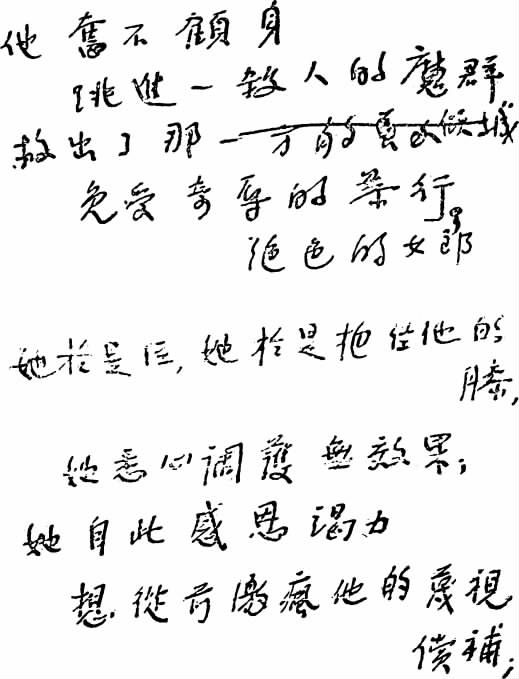 他奮不顧身
跳進一殺人的魔群
救出了那一
免受奇辱的暴行。
絕色的女郎
她於是, 她於是抱住他的
膝,
她悉心調護無效果;
她自此感恩竭力
想從前激瘋他的蔑視
償補;